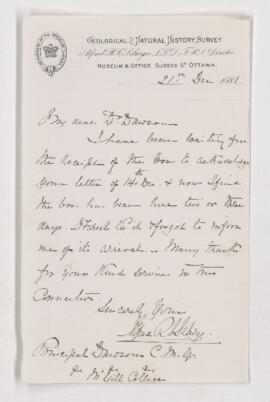 GEOLOGICAL & NATURAL HISTORY SURVEY.
Alfred R. C. Selwyn, L.L.D., F.R.S. Director
MUSEUM & OFFICE, SUSSEX ST OTTAWA.
21st Dec 1881.
My dear Dr Dawson
I have been waiting for
the receipt of the box to acknowledge
your letter of 14th Dec. & now I find
the box has been here two or three
days. & forgot to inform
me of its arrival. Many thanks
for your kind services in this
Connection.
Sincerely Yours
Alfred R C Selwyn
Principal Dawson C. M. G.
McGill College